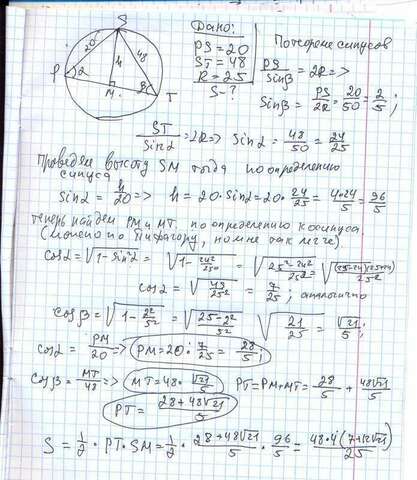 S
20
48
h
P
α
β
M
T
Дано:
PS = 20
ST = 48
R = 25
S - ?
По теореме синусов
PS/sinβ = 2R =>
sinβ = PS/2R = 20/50 = 2/5;
ST/sinα = 2R => sinα = 48/50 = 24/25
Проведем высоту SM тогда по определению
синуса
sinα = h/20 => h = 20·sinα = 20·24/25 = 4·24/5 = 96/5
теперь найдем PM и MT. по определению косинуса
(можно по Пифагору, но мне так легче).
cosα = √(1-sin²α) = √(1-24²/25²) = √((25²-24²)/25²) = √((25-24)(25+24)/25²)
cosα = √(49/25²) = 7/25; аналогично
cosβ = √(1-2²/5²) = √((25-2²)/5²) √(21/25) = √21/5;
cosα = PM/20 => PM = 20·7/25 = 28/5;
cosβ = MT/48 => MT = 48·√21/5 PT = PM+MT = 28/5 + 48√21/5
PT = (28+48√21)/5
S = 1/2·PT·SM = 1/2·(28+48√21)/5·96/5 = 48·4(7+12√21)/25